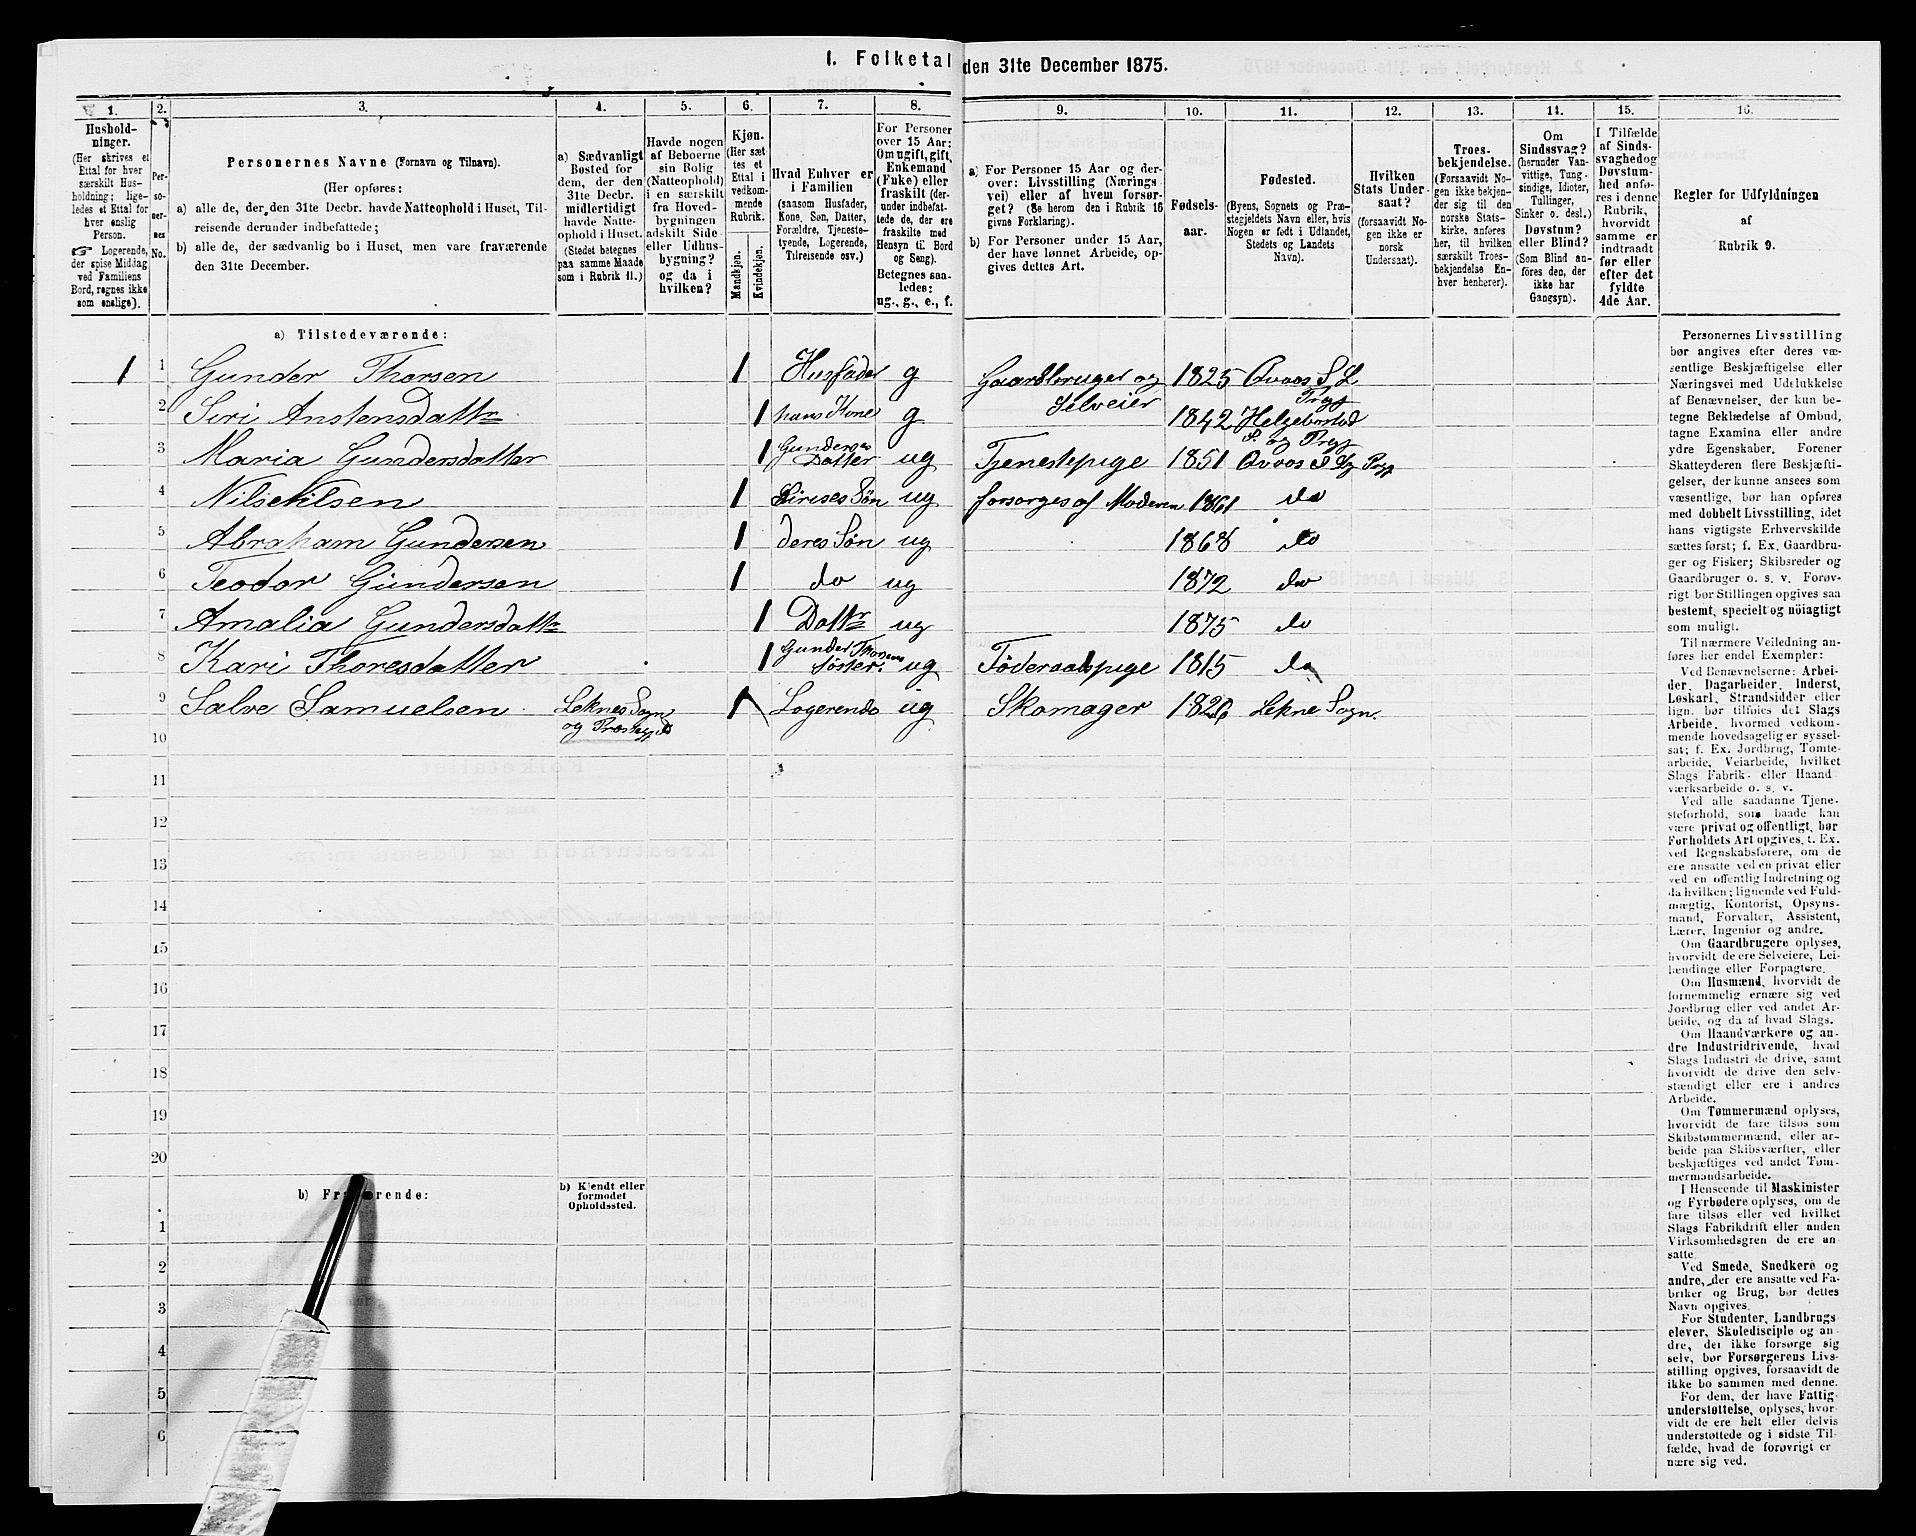 1. Folketal den 31te December 1875.
1. 2. 3. 4. 5. 6. 7. 8. 9. 10. 11. 12. 13. 14. 15. 16.
Hushold-
ninger.
(Her skrives et
Ettal for hver
særskilt Hus-
holdning; lige-
ledes et Ettal for
hver enslig
Person.
☞ Logerende,
der spise Middag
ved Familiens
Bord, regnes ikke
som enslige).
Per-
so-
ner-
nes
No.
Personernes Navne (Fornavn og Tilnavn).
(Her opføres:
a) alle de, der den 31te Decbr. havde Natteophold i Huset, Til-
reisende derunder indbefattede;
b) alle de, der sædvanlig bo i Huset, men vare fraværende
den 31te December.
a) Sædvanligt
Bosted for
dem, der den
31te Decbr.
midlertidigt
havde Natte-
ophold i Huset.
(Stedet betegnes
paa samme Maade
som i Rubrik 11.)
Havde nogen
af Beboerne
sin Bolig
(Natteophold)
i en særskilt
fra Hoved-
bygningen
adskilt Side-
eller Udhus-
bygning?
og da i
hvilken?
Kjøn.
(Her sæt-
tes et
Ettal i
vedkom-
mende
Rubrik.
Mandkjøn.
Kvindekjøn.
Hvad Enhver er
i Familien
(saasom Husfader,
Kone, Søn, Datter,
Forældre, Tjeneste-
tyende, Logerende,
Tilreisende osv.)
For Personer
over 15 Aar:
Om ugift, gift,
Enkemand
(Enke) eller
fraskilt (der-
under indbefat-
tede de, der ere
fraskilte med
Hensyn til Bord
og Seng).
Betegnes saa-
ledes:
ug., g., e., f.
a) For Personer 15 Aar og der-
over: Livsstilling (Nærings
vei) eller af hvem forsør-
get? (Se herom den i Rubrik 16
givne Forklaring).
b) For Personer under 15 Aar,
der have lønnet Arbeide, op-
gives dettes Art.
Fødsels-
aar.
Fødested.
(Byens, Sognets og Præ-
stegjeldets Navn eller, hvis
Nogen er født i Udlandet,
Stedets og Landets
Navn).
Hvilken
Stats Under-
saat?
(forsaavidt No-
gen ikke er
norsk
Undersaat).
Troes-
bekjendelse.
(Forsaavidt No-
gen ikke bekjen-
der sig til den
norske Stats-
kirke, anføres
her, til hvilken
særskilt Troes-
bekjendelse En-
hver henhører).
Om
Sindssvag?
(herunder Van-
vittige, Tung-
sindige, Idioter,
Tullinger,
Sinker o. desl.)
Døvstum?
eller Blind?
(Som Blind an-
føres den, der
ikke har
Gangsyn).
I Tilfælde
af Sinds-
svaghed og
Døvstum-
hed anfø-
res i denne
Rubrik,
hvorvidt
samme er
indtraadt
før eller
efter det
fyldte
4de Aar.
Regler for Udfyldningen
af
Rubrik 9.
a) Tilstedeværende:
1 1 Gunder Thorsen 1 Husfader g Gaardbruger og Selveier 1825 Qvaas S L Prgj
2 Siri Anstensdattr 1 hans Kone g 1842 Helgebostad S. og Pregj
3 Maria Gundersdatter 1 Gunderses Datter ug Tjenestepige 1851 Qvaas S Lg Prgj
4 Nils Nilsen 1 Sirises Søn ug forsorges af Moderen 1861 do
5 Abraham Gundersen 1 deres Søn ug 1868 do
6 Teodor Gundersen 1 do ug 1872 do
7 Amalia Gundersdattr 1 Dattr ug 1875 do
8 Kari Thoresdatter 1 Gunder Thorsens Søster. ug Föderaadspige 1815 do
9 Salve Samuelsen Leknes Sogn og Præstegj 1 Logerende ug Skomager 1826 Lekne Sogn.
10
11
12
13
14
15
16
17
18
19
20
b) Fraværende:
b) Kjendt eller
formodet
Opholdssted.
1
2
3
4
5
6
Personernes Livsstilling
bør angives efter deres væ-
sentlige Beskjæftigelse eller
Næringsvei med Udelukkelse
af Benævnelser, der kun be-
tegne Beklædelse af Ombud,
tagne Examina eller andre
ydre Egenskaber. Forener
Skatteyderen flere Beskjæfti-
gelser, der kunne ansees som
væsentlige, bør han opføres
med dobbelt Livsstilling, idet
hans vigtigste Erhvervskilde
sættes først; f. Ex. Gaardbru-
ger og Fisker; Skibsreder og
Gaardbruger o. s. v. Forøv-
rigt bør Stillingen opgives saa
bestemt, specielt og nöiagtigt
som muligt.
Til nærmere Veiledning an-
føres her endel Exempler:
Ved Benævnelserne: Arbei-
der, Dagarbeider, Inderst,
Løskarl, Strandsidder eller
lign. bør tilføies det Slags
Arbeide, hvormed vedkom-
mende hovedsagelig er syssel-
sat; f. Ex. Jordbrug, Tomte-
arbeide, Veiarbeide, hvilket
Slags Fabrik- eller Haand
værksarbeide o. s. v.
Ved alle saadanne Tjene-
steforhold, som baade kan
være privat og offentligt, bør
Forholdets Art opgives, t. Ex.
ved Regnskabsførere, om de
ere ansatte ved en privat eller
ved en offentlig Indretning og
da hvilken; lignende ved Fuld-
mægtig, Kontorist, Opsyns-
mand, Forvalter, Assistent,
Lærer, Ingeniør og andre.
Om Gaardbrugere oplyses,
hvorvidt de ere Selveiere, Lei-
lændinge eller Forpagtere.
Om Husmænd, hvorvidt de
fornemmelig ernære sig ved
Jordbrug eller ved andet Ar-
beide, og da af hvad Slags.
Om Haandværkere og an-
dre Industridrivende, hvad
Slags Industri de drive, samt
hvorvidt de drive den selv-
stændigt eller ere i andres
Arbeide.
Om Tømmermænd oplyses,
hvorvidt de fare tilsøs som
Skibstømmermænd, eller ar-
beide paa Skibsværfter, eller
beskjæftiges ved andet Tøm-
mermandsarbeide.
I Henseende til Maskinister
og Fyrbødere oplyses, om de
fare tilsøs eller ved hvilket
Slags Fabrikdrift eller anden
Virksomhedsgren de ere an-
satte.
Ved Smede, Snedkere og
andre, der ere ansatte ved Fa-
briker og Brug, bør dettes
Navn opgives.
For Studenter, Landbrugs
elever, Skoledisciple og an-
dre, der ikke forsørge sig
selv, bør Forsørgerens Livs-
stilling opgives, forsaavidt de
ikke bo sammen med denne.
For dem, der have Fattig
understøttelse, oplyses, hvor-
vidt de ere helt eller delvis
understøttede og i sidste Til-
fælde, hvad de forøvrigt er
nære sig ved.